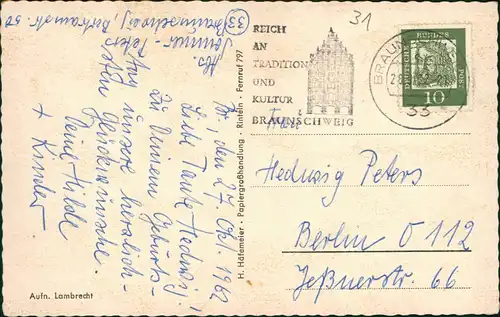 Abs.
Sommer-Peters
(33) Braunschweig, Bertramstr. 50
Br., den 27. Okt. 1962
Liebe Tante Hedwig!
Zu Deinem Geburts-
tag unsere herzlich-
sten Glückwünsche.
Deine Hilde
+ Kinder
Aufn. Lambrecht
H. Häfemeier - Papiergroßhandlung - Rinteln - Fernruf 797
REICH
AN
TRADITION
UND
KULTUR
BRAUNSCHWEIG
31
BRAUN
33
DEUTSCHE BUNDESPOST
10
Frau
Hedwig Peters
Berlin O 112
Jeßnerstr. 66